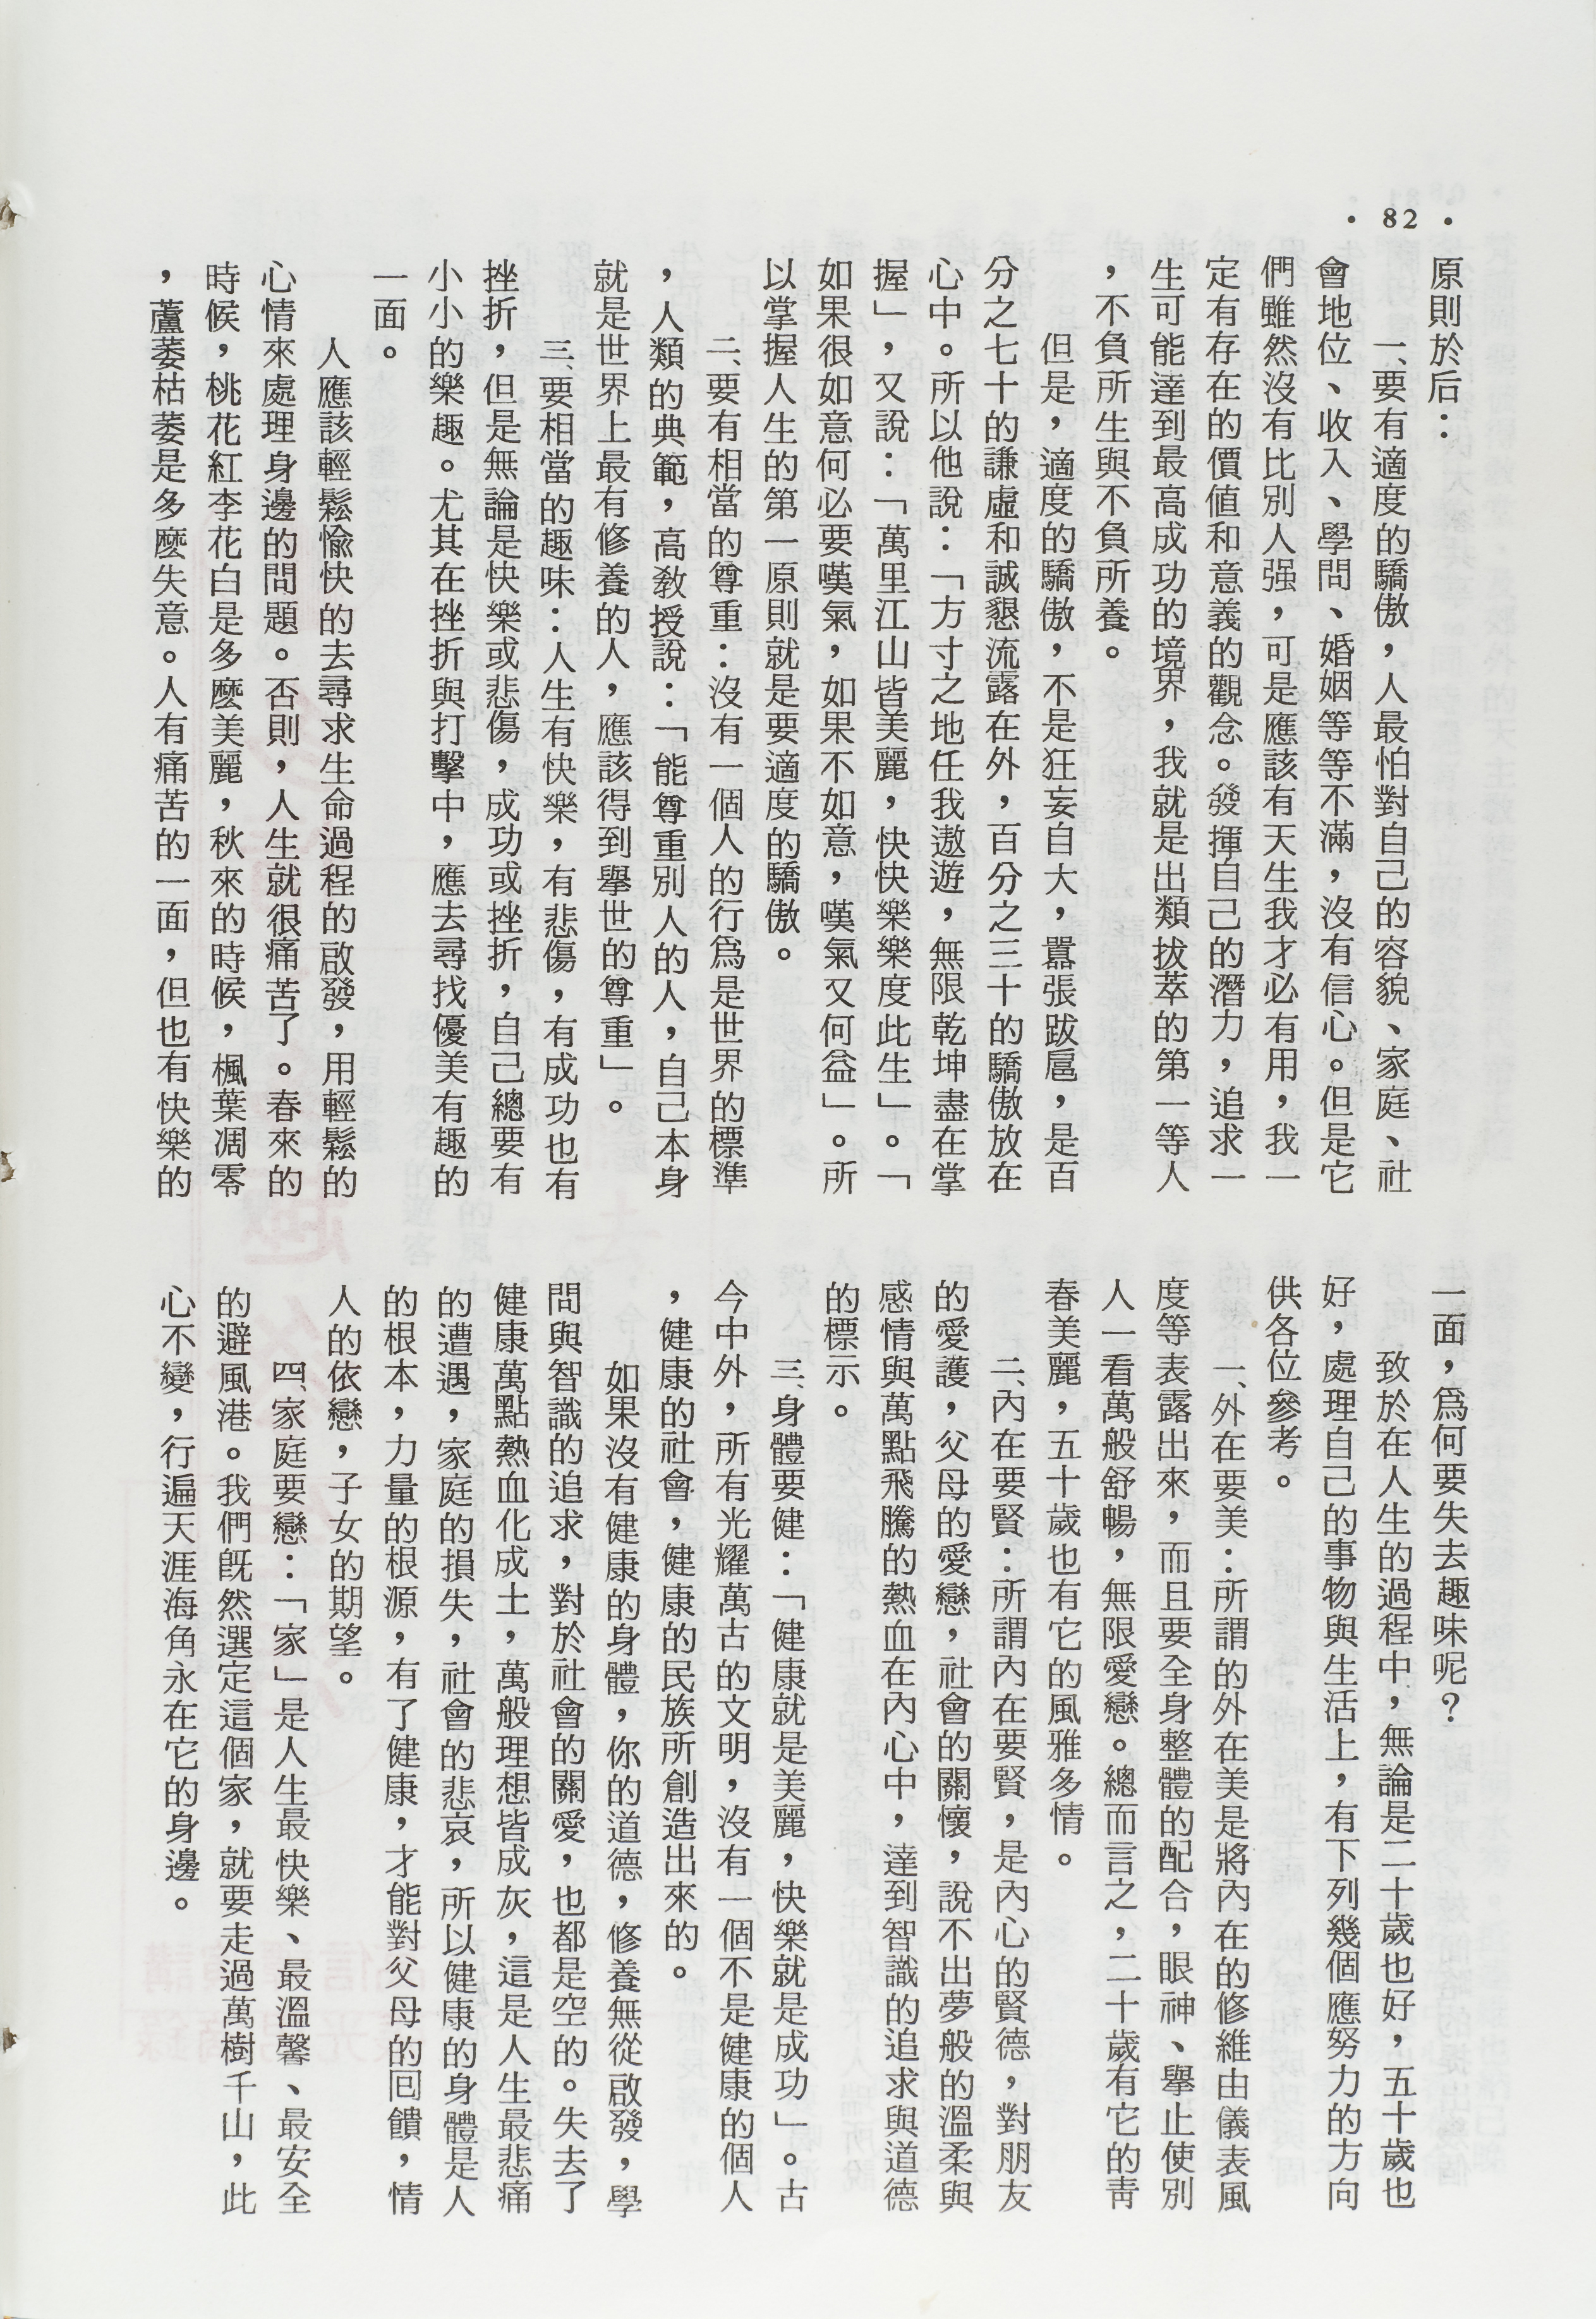 • 82 •
原則於后：
一、要有適度的驕傲，人最怕對自己的容貌、家庭、社
會地位、收入、學問、婚姻等等不滿，沒有信心。但是它
們雖然沒有比別人强，可是應該有天生我才必有用，我一
定有存在的價値和意義的觀念。發揮自己的潛力，追求一
生可能達到最高成功的境界，我就是出類拔萃的第一等人
，不負所生與不負所養。
但是，適度的驕傲，不是狂妄自大，囂張跋扈，是百
分之七十的謙虛和誠懇流露在外，百分之三十的驕傲放在
心中。所以他說：「方寸之地任我遨遊，無限乾坤盡在掌
握」，又說：「萬里江山皆美麗，快快樂樂度此生」。「
如果很如意何必要嘆氣，如果不如意，嘆氣又何益」。所
以掌握人生的第一原則就是要適度的驕傲。
二、要有相當的尊重：沒有一個人的行爲是世界的標準
，人類的典範，高敎授說：「能尊重別人的人，自己本身
就是世界上最有修養的人，應該得到舉世的尊重」。
三、要相當的趣味：人生有快樂，有悲傷，有成功也有
挫折，但是無論是快樂或悲傷，成功或挫折，自己總要有
小小的樂趣。尤其在挫折與打擊中，應去尋找優美有趣的
一面。
人應該輕鬆愉快的去尋求生命過程的啟發，用輕鬆的
心情來處理身邊的問題。否則，人生就很痛苦了。春來的
時候，桃花紅李花白是多麽美麗，秋來的時候，楓葉凋零
，蘆萎枯萎是多麽失意。人有痛苦的一面，但也有快樂的
一面，爲何要失去趣味呢？
致於在人生的過程中，無論是二十歲也好，五十歲也
好，處理自己的事物與生活上，有下列幾個應努力的方向
供各位參考。
一、外在要美：所謂的外在美是將內在的修維由儀表風
度等表露出來，而且要全身整體的配合，眼神、舉止使別
人一看萬般舒暢，無限愛戀。總而言之，二十歲有它的靑
春美麗，五十歲也有它的風雅多情。
二、內在要賢：所謂內在要賢，是內心的賢德，對朋友
的愛護，父母的愛戀，社會的關懷，說不出夢般的溫柔與
感情與萬點飛騰的熱血在內心中，達到智識的追求與道德
的標示。
三、身體要健：「健康就是美麗，快樂就是成功」。古
今中外，所有光耀萬古的文明，沒有一個不是健康的個人
，健康的社會，健康的民族所創造出來的。
如果沒有健康的身體，你的道德，修養無從啟發，學
問與智識的追求，對於社會的關愛，也都是空的。失去了
健康萬點熱血化成土，萬般理想皆成灰，這是人生最悲痛
的遭遇，家庭的損失，社會的悲哀，所以健康的身體是人
的根本，力量的根源，有了健康，才能對父母的回饋，情
人的依戀，子女的期望。
四、家庭要戀：「家」是人生最快樂、最溫馨、最安全
的避風港。我們旣然選定這個家，就要走過萬樹千山，此
心不變，行遍天涯海角永在它的身邊。